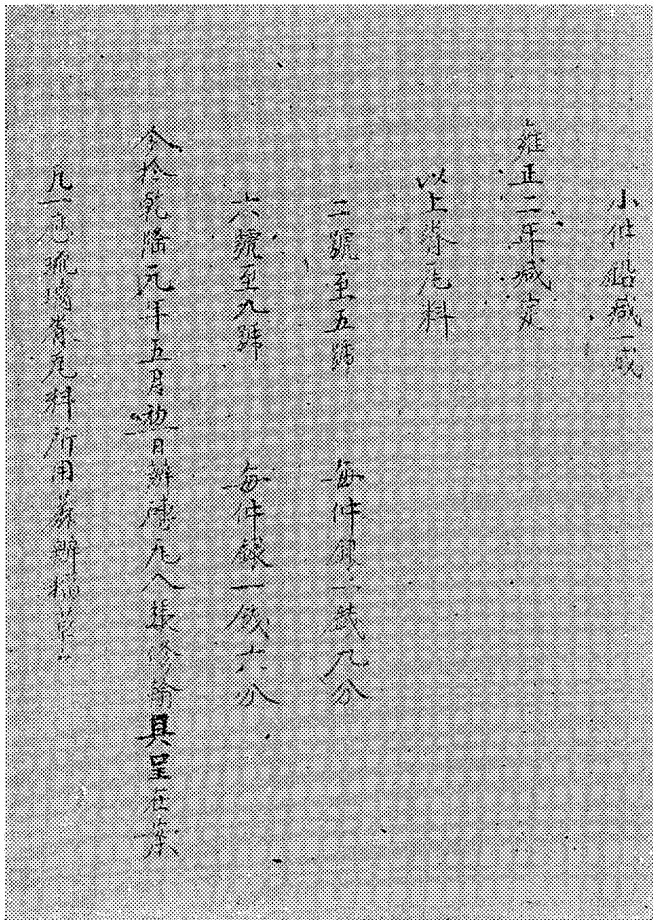 小件鉛減一成
雍正二年減定
以上條瓦料
二號至五號　每件銀一錢九分
六號至九號　每件銀一錢六分
今於乾隆元年五月初日辦磚瓦人張修翰具呈在案
凡一應琉璃磚瓦料所用蘇辦稻草